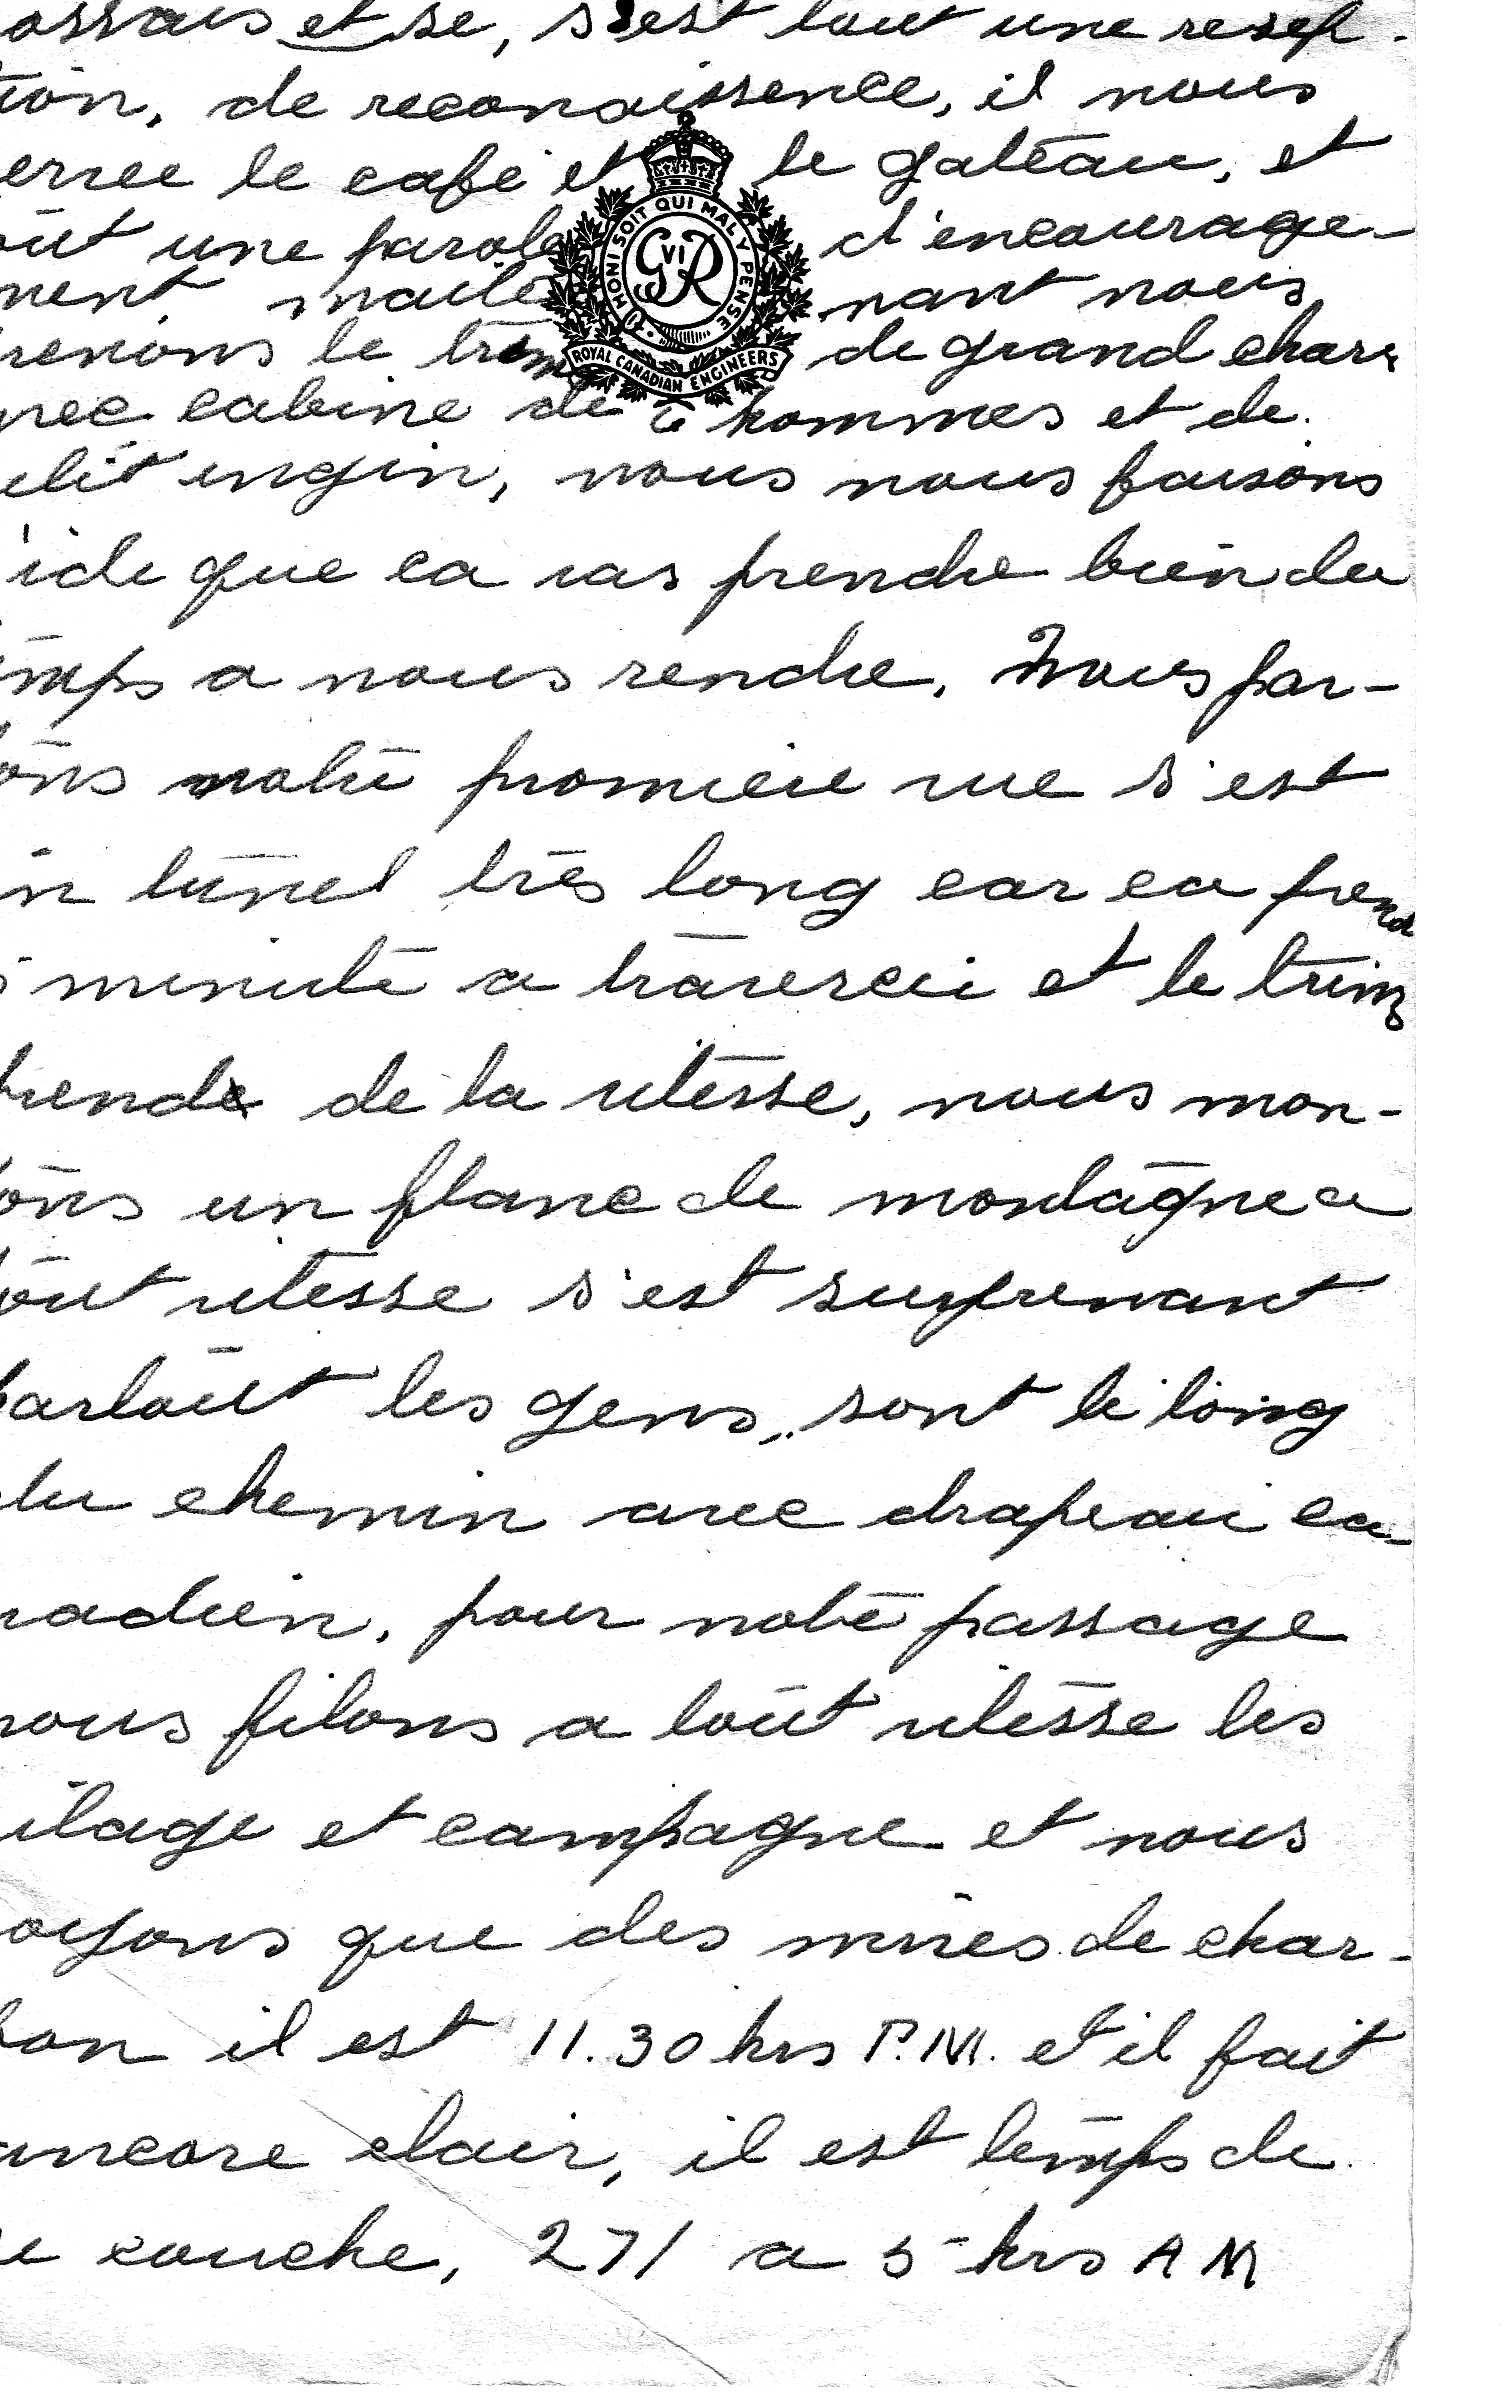 ossais et se, s'est tout une resep-
tion, de reconaissence, il nous
ervee le cafe et le gateau, et
out une parole d'encourage-
ment, maite nant nous
renons le trin de grand chars
vec cabine de 6 hommes et de
etit engin, nous nous faisons
'ide que ca vas prendre bien du
emps a nous rendre, Nous par-
tons notre promiere vue s'est
un tunel très long car ca prend
minute a travercer et le trin
prend de la vitesse, nous mon-
tons un flanc de montagne a
tout vitesse s'est surprenant
partout les gens, sont le long
du chemin avec drapeau ca-
nadien, pour notre passage
nous filons a tout vitesse les
vilage et campagne et nous
voyons que des mines de char-
bon il est 11.30 hrs P.M. et il fait
encore clair, il est temps de
se couche, 27/ a 5 hrs A M
HONI SOIT QUI MAL Y PENSE
G VI R
ROYAL CANADIAN ENGINEERS